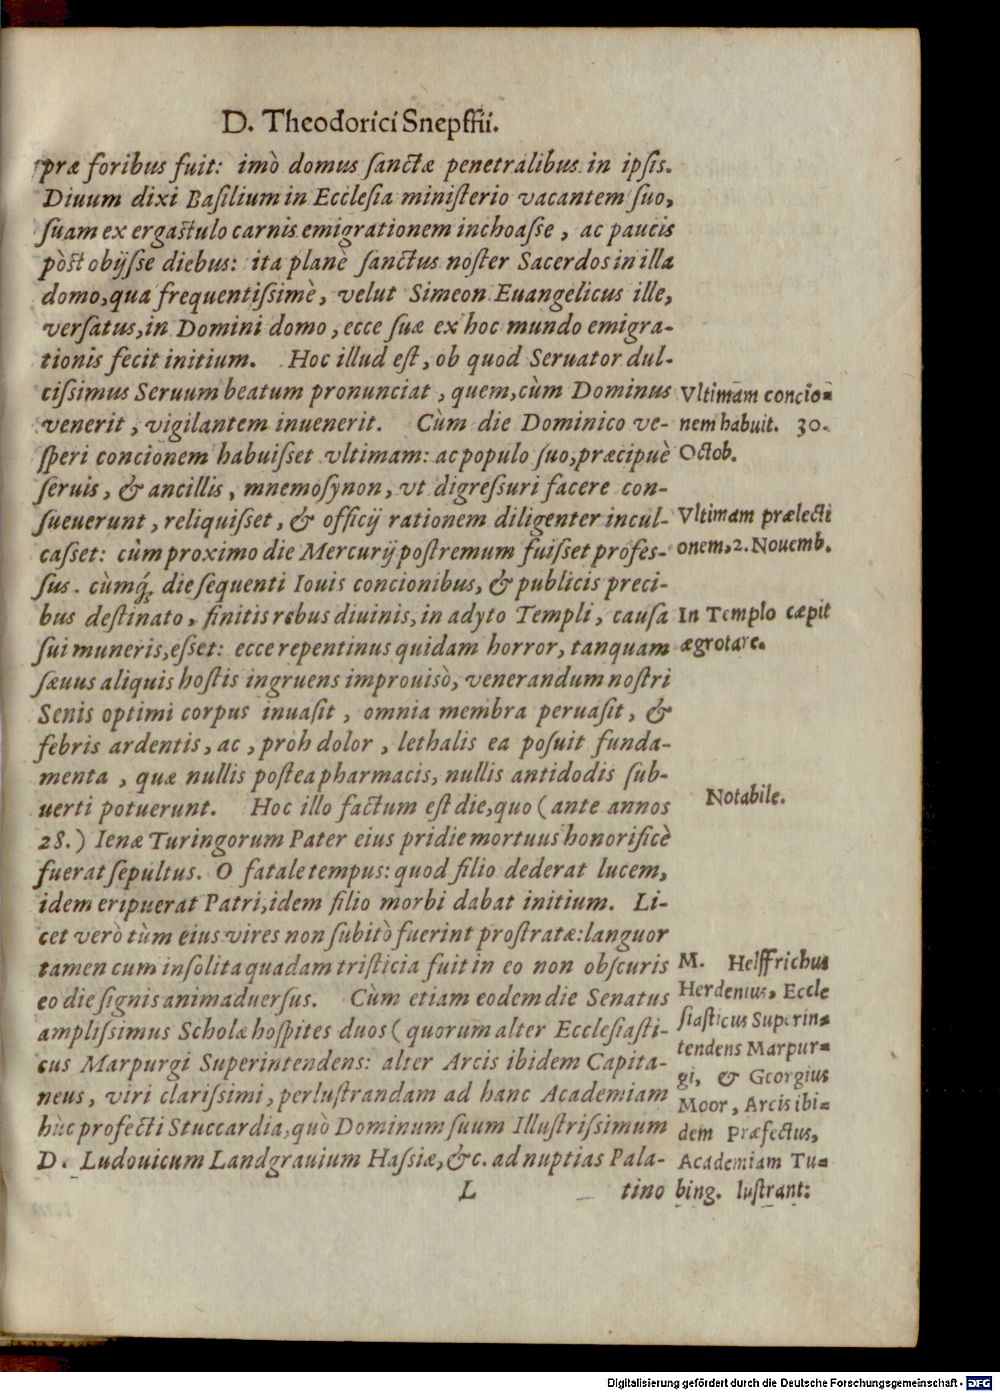 D. Theodorici Snepffii.
præ foribus fuit: imò domus ſanctæ penetralibus in ipſis.
Diuum dixi Baſilium in Eccleſia miniſterio vacantem ſuo,
ſuam ex ergaſtulo carnis emigrationem inchoaſſe, ac paucis
pòſt obijſſe diebus: ita planè ſanctus noſter Sacerdos in illa
domo, qua frequentiſsimè, velut Simeon Euangelicus ille,
verſatus, in Domini domo, ecce ſuæ ex hoc mundo emigra-
tionis fecit initium. Hoc illud eſt, ob quod Seruator dul-
ciſsimus Seruum beatum pronunciat, quem, cùm Dominus
venerit, vigilantem inuenerit. Cùm die Dominico ve-
ſperi concionem habuiſset vltimam: ac populo ſuo, præcipuè
ſeruis, & ancillis, mnemoſynon, vt digreſsuri facere con-
ſueuerunt, reliquiſset, & officij rationem diligenter incul-
caſset: cùm proximo die Mercurij poſtremum fuiſset profeſ-
ſus. cùmq́; die ſequenti Iouis concionibus, & publicis preci-
bus deſtinato, finitis rebus diuinis, in adyto Templi, cauſa
ſui muneris, eſset: ecce repentinus quidam horror, tanquam
ſæuus aliquis hoſtis ingruens improuisò, venerandum noſtri
Senis optimi corpus inuaſit, omnia membra peruaſit, &
febris ardentis, ac, proh dolor, lethalis ea poſuit funda-
menta, quæ nullis poſtea pharmacis, nullis antidodis ſub-
uerti potuerunt. Hoc illo factum eſt die, quo (ante annos
28.) Ienæ Turingorum Pater eius pridie mortuus honorificè
fuerat ſepultus. O fatale tempus: quod filio dederat lucem,
idem eripuerat Patri, idem filio morbi dabat initium. Li-
cet verò tùm eius vires non ſubitò fuerint proſtratæ: languor
tamen cum inſolita quadam triſticia fuit in eo non obſcuris
eo die ſignis animaduerſus. Cùm etiam eodem die Senatus
ampliſsimus Scholæ hoſpites duos (quorum alter Eccleſiaſti-
cus Marpurgi Superintendens: alter Arcis ibidem Capita-
neus, viri clariſsimi, perluſtrandam ad hanc Academiam
hùc profecti Stuccardia, quò Dominum ſuum Illuſtriſsimum
D. Ludouicum Landgrauium Haſsiæ, &c. ad nuptias Pala-
L tino
Vltimam concio-
nem habuit. 30.
Octob.
Vltimam prælecti
onem, 2. Nouemb.
In Templo cæpit
ægrotare.
Notabile.
M. Helffrichus
Herdenius, Eccle
ſiaſticus Superin-
tendens Marpur-
gi, & Georgius
Moor, Arcis ibi-
dem Præfectus,
Academiam Tu-
bing. luſtrant:
Digitalisierung gefördert durch die Deutsche Forschungsgemeinschaft - DFG